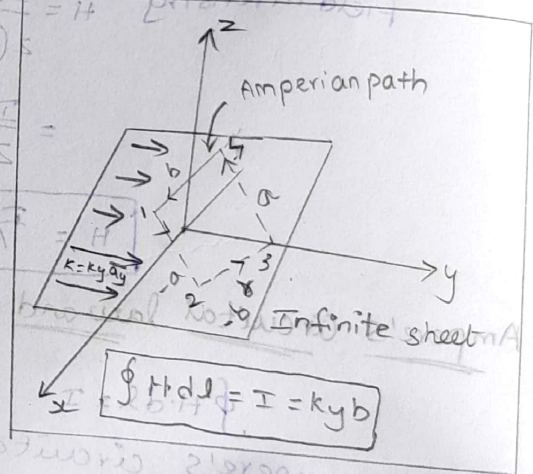 z
Amperian path
4
b
a
1
K=Ky ay
3
y
a
2
b
Infinite sheet
x
∮ H dl = I = Kyb